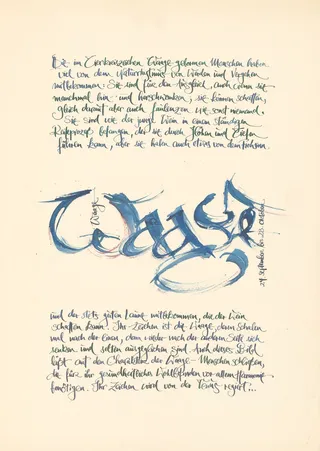 Die im Tierkreiszeichen Waage geborenen Menschen haben
viel von dem Naturrhythmus von Werden und Vergehen
mitbekommen: Sie sind für den Ausgleich, auch wenn sie
manchmal hin und herschwanken; sie können schaffen,
gleich darauf aber auch faulenzen wie sonst niemand.
Sie sind wie der junge Wein in einem ständigen
Reifeprozeß befangen, der sie durch Höhen und Tiefen
führen kann, aber sie haben auch etwas von dem
Waage
Waage
24. September bis 23. Oktober
und der stets guten Laune mitbekommen, die der Wein
schaffen kann. Ihr Zeichen ist die Waage, deren Schalen
mal nach der einen, dann wieder nach der anderen Seite sich
senken und selten ausgeglichen sind. Auch dieses Bild
läßt auf den Charakter der Waage-Menschen schließen,
die für ihr gesundheitliches Wohlbefinden vor allem Harmonie
benötigen. Ihr Zeichen wird von der Venus regiert...